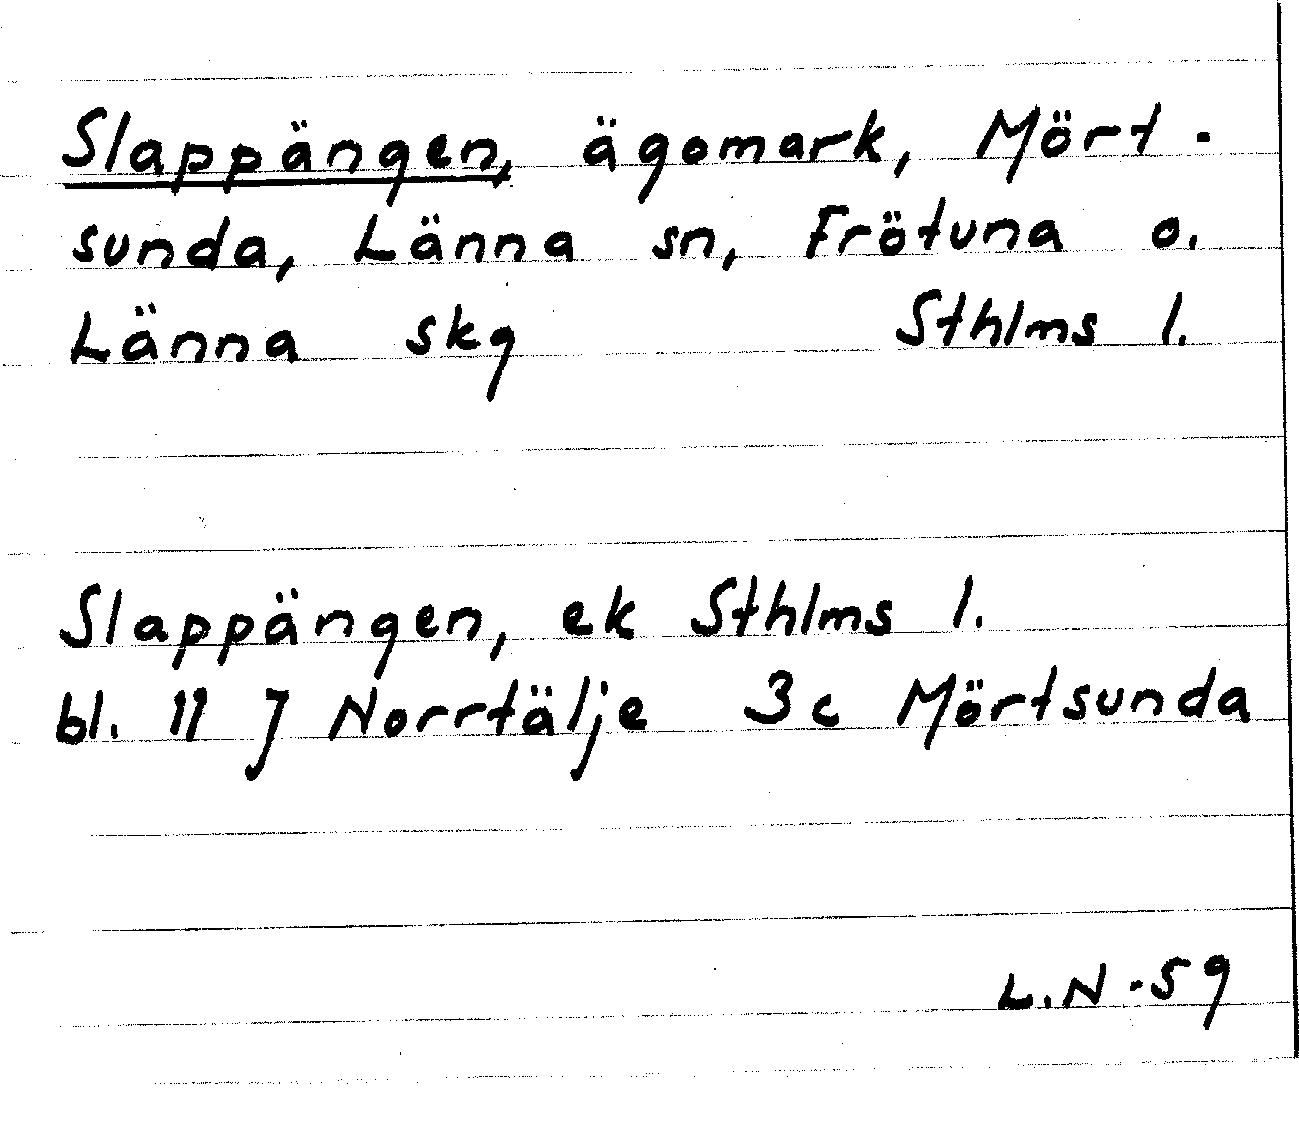 Slappängen, ägomark, Mört-
sunda, Länna sn, Frötuna o.
Länna skg Sthlms l.
Slappängen, ek Sthlms l.
bl. 11 J Norrtälje 3c Mörtsunda
L.N -59